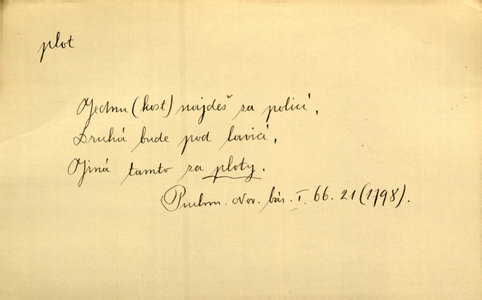 plot
Jednu (kost) najdeš za policí,
Druhá bude pod lavicí,
Jiná tamto za ploty.
Puchm. Nov. bás. I. 66. 21 (1798).